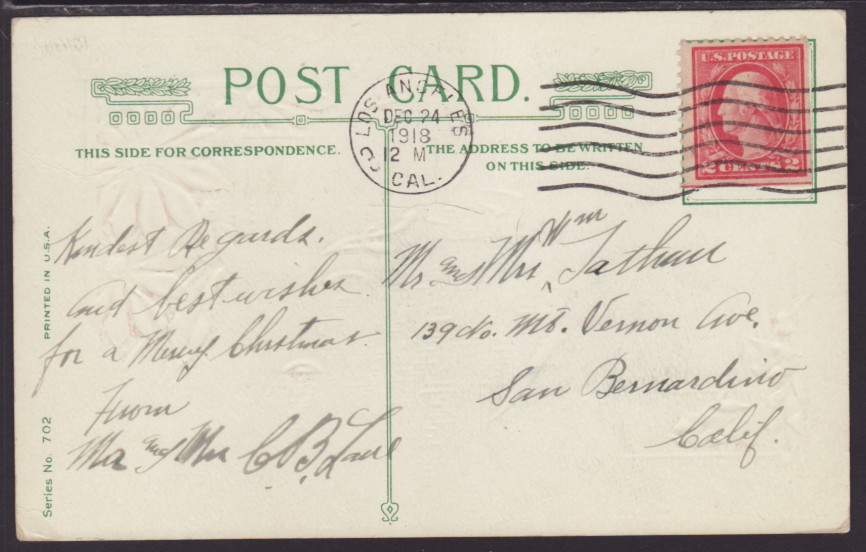 POST CARD.
U.S. POSTAGE
2 CENTS 2
LOS ANGELES
DEC 24
1918
12 M
CAL.
THIS SIDE FOR CORRESPONDENCE.
THE ADDRESS TO BE WRITTEN
ON THIS SIDE.
Kindest Regards.
and best wishes
for a Merry Christmas.
From
Mr and Mrs C B
Mr and Mrs Wm
139 No. Mt. Vernon Ave.
San Bernardino
Calif.
PRINTED IN U.S.A.
Series No. 702